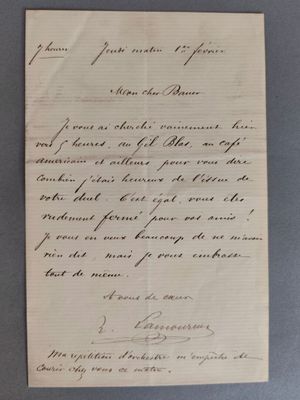 7 heures Jeudi matin 1er février
Mon cher Bauer
Je vous ai cherché vainement hier
vers 5 heures, au Gil Blas, au café
américain et ailleurs pour vous dire
combien j'étais heureux de l'issue de
votre duel. C'est égal, vous êtes
rudement fermé pour vos amis !
Je vous en veux beaucoup de ne m'avoir
rien dit, mais je vous embrasse
tout de même.
A vous de cœur
Lamoureux
Ma répétition d'orchestre m'empêche de
courir chez vous ce matin.